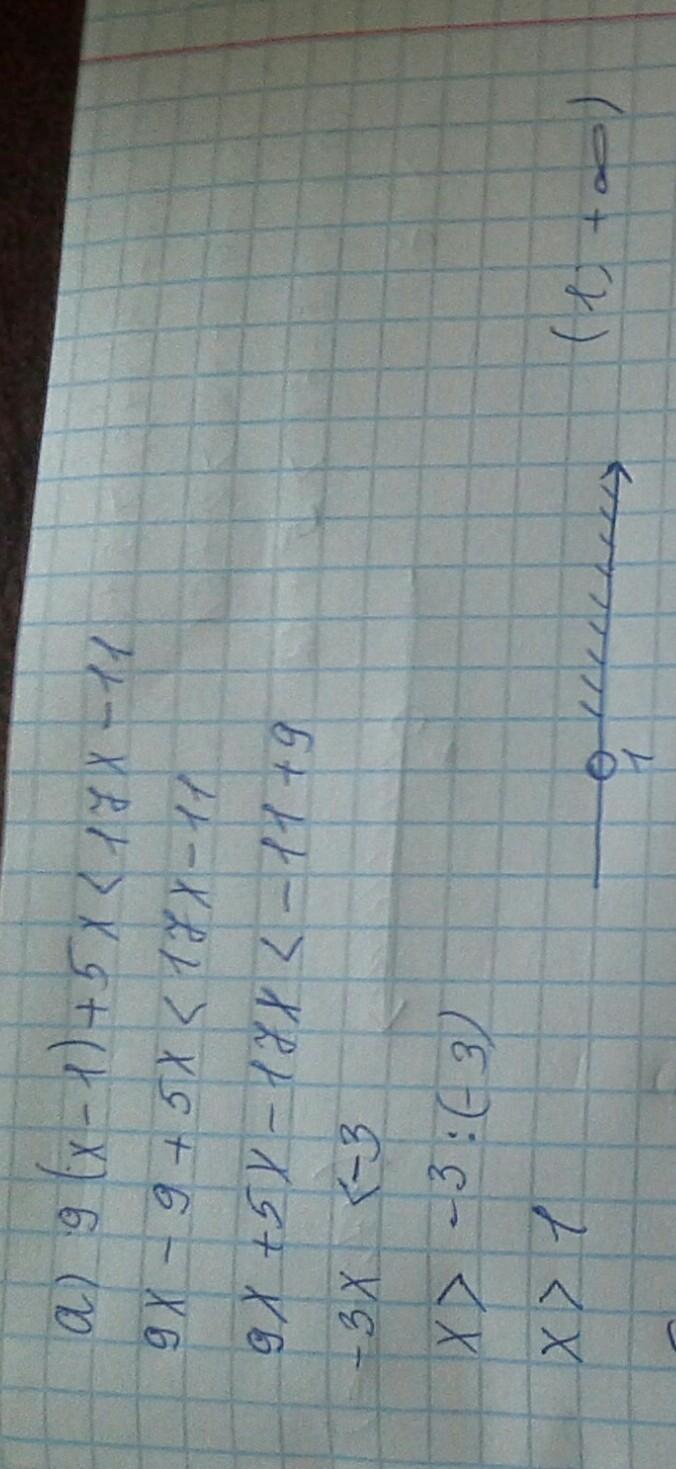 а) 9(x-1)+5x<17x-11
9x-9+5x<17x-11
9x+5x-17x<-11+9
-3x <-3
x>-3:(-3)
x>1
1
(1; +∞)